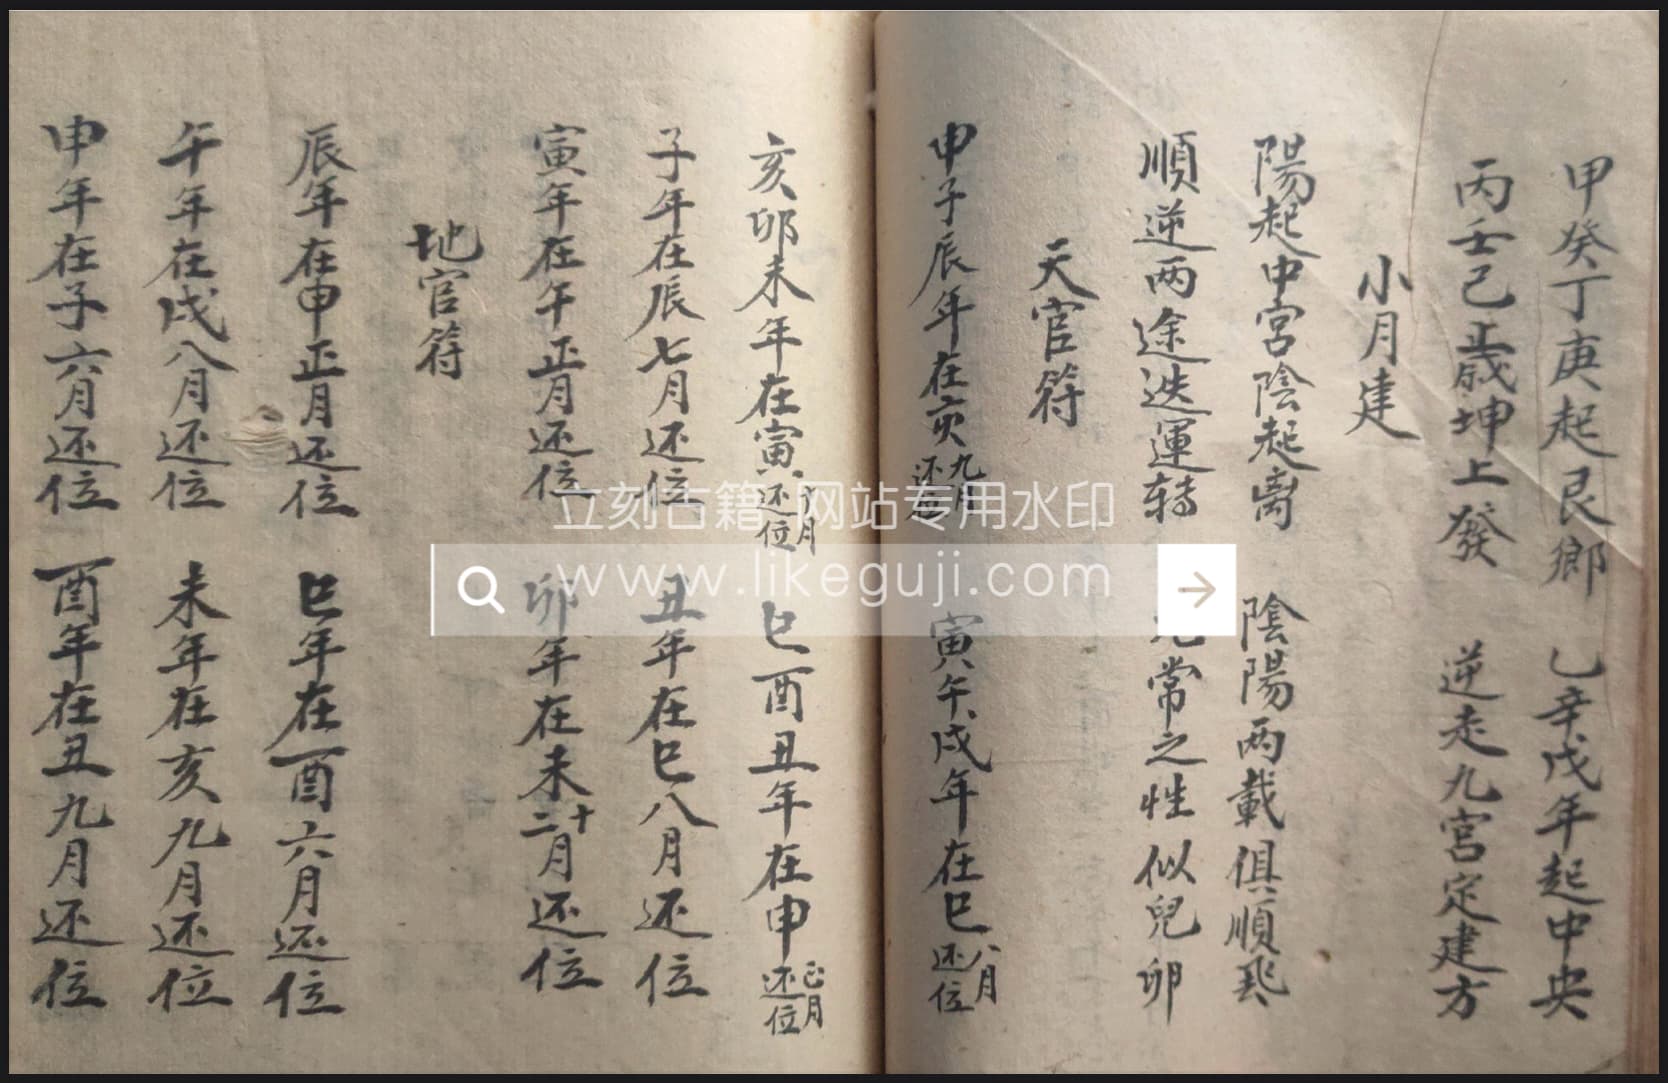 甲癸丁庚起艮鄉 乙辛戊年起中央
丙壬己正歲坤上發 逆走九宮定建方
小月建
陽起中宮陰起离 陰陽两載俱順飛
順逆两途迭運转 常之性似兒卯
天官符
申子辰年在亥九月还位 寅午戌年在巳八月还位
亥卯未年在寅六月还位 巳酉丑年在申正月还位
子年在辰七月还位 丑年在巳八月还位
寅年在午正月还位 卯年在未十二月还位
地官符
辰年在申正月还位 巳年在酉六月还位
午年在戌八月还位 未年在亥九月还位
申年在子六月还位 酉年在丑九月还位
立刻古籍 网站专用水印
www.likeguji.com